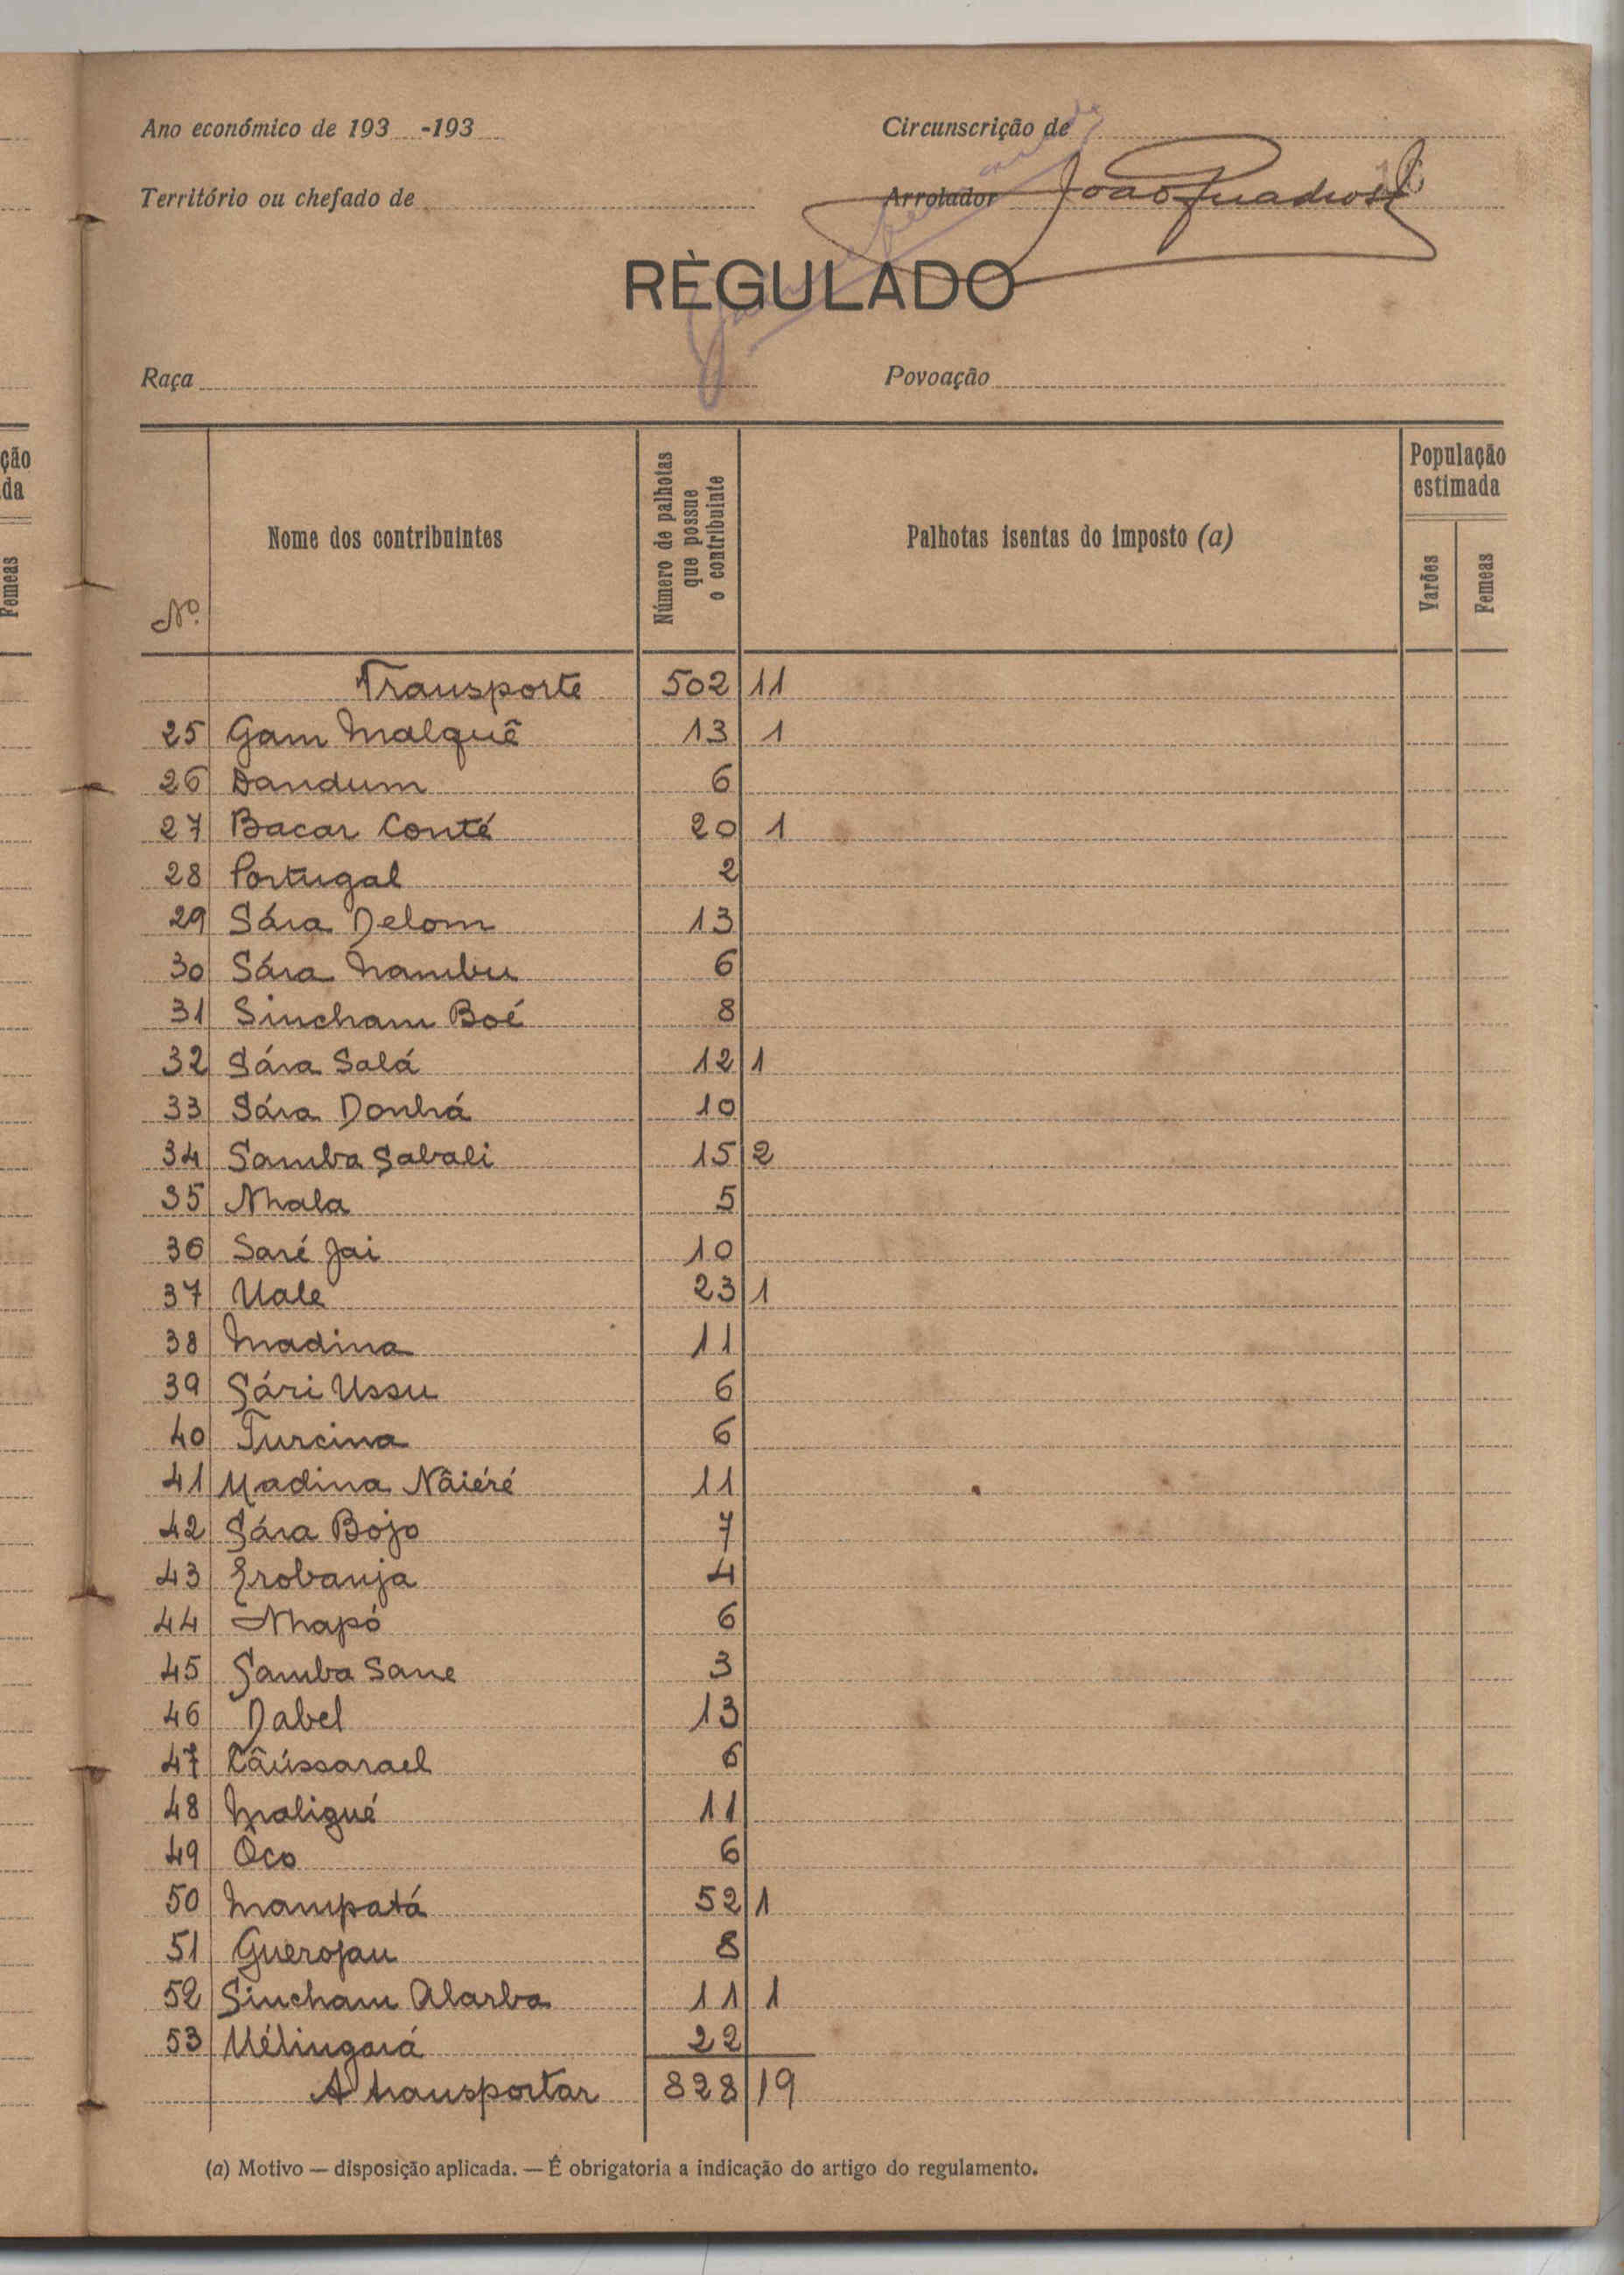 Ano económico de 193 -193
Circunscrição de
Território ou chefado de
Arrolador João Quadros
RÈGULADO
Raça
Povoação
Nº
Nome dos contribuintes
Número de palhotas que possue o contribuinte
Palhotas isentas do imposto (a)
População estimada
Varões
Femeas
Transporte 502 11
25 Gam Malquê 13 1
26 Dandum 6
27 Bacar Conté 20 1
28 Portugal 2
29 Sára Delom 13
30 Sára Nambu 6
31 Sincham Boé 8
32 Sára Salá 12 1
33 Sára Donhá 10
34 Samba Sabali 15 2
35 Nhala 5
36 Saré Jai 10
37 Uale 23 1
38 Madina 11
39 Sári Ussu 6
40 Turcina 6
41 Madina Nâiéré 11
42 Sára Bojo 7
43 Erobanja 4
44 Nhapó 6
45 Samba Sane 3
46 Dabel 13
47 Câússarael 6
48 Maligué 11
49 Ôco 6
50 Mampatá 52 1
51 Guerojau 8
52 Sincham Alarba 11 1
53 Uélingará 22
A transportar 828 19
(a) Motivo — disposição aplicada. — É obrigatoria a indicação do artigo do regulamento.
ção
da
Femeas